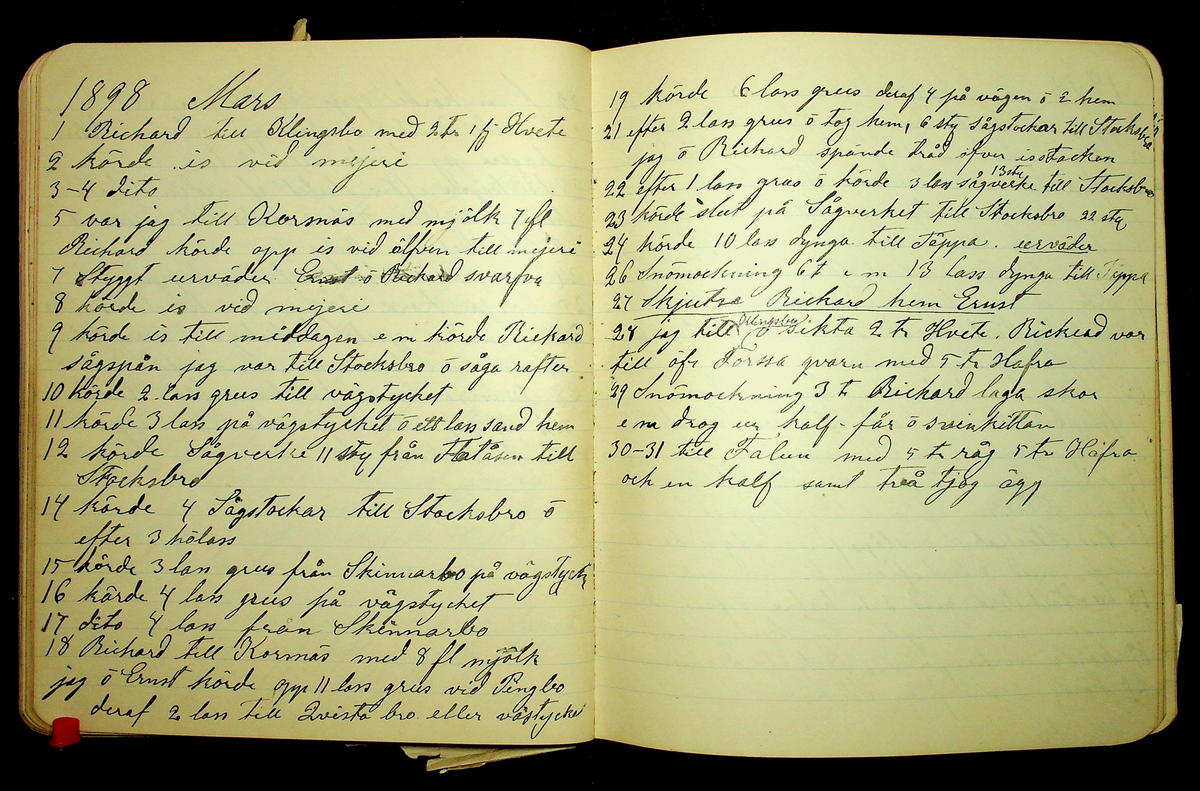 1898 Mars
1 Richard till Klingsbo med 2 tr 1 fj Hvete
2 körde is vid mejeri
3-4 dito
5 var jag till Kormäs med mjölk 7 fl
Richard körde opp is vid älfven till mejeri
7 Styggt urväder Ernst ö Rickard svarfva
8 körde is vid mejeri
9 körde is till middagen e m körde Rickard
sågspån jag var till Stocksbro ö såga rafter
10 körde 2 lass grus till vägstycket
11 körde 3 lass på vägstycket ö ett lass sand hem
12 körde Sågverke 11 sty från Flatåsen till
Stocksbro
14 körde 4 Sågstockar till Stocksbro ö
efter 3 hölass
15 körde 3 lass grus från Skinnarbo på vägstycke
16 körde 4 lass grus på vägstycket
17 dito 4 lass från Skinnarbo
18 Richard till Kormäs med 8 fl mjölk
jag ö Ernst körde opp 11 lass grus vid Pengbo
deraf 2 lass till Qvista bro eller vägstycke
19 körde 6 lass grus deraf 4 på vägen ö 2 hem
21 efter 2 lass grus ö tog hem, 6 sty sågstockar till Stocksbro
jag ö Richard spände tråd öfver isstacken
22 efter 1 lass grus ö körde 3 lass sågverke 13 sty till Stocksbro
23 körde slut på Sågverket till Stocksbro 22 sty
24 körde 10 lass dynga till Täppa. urväder
26 Snömockning 6 t e m 13 lass dynga till Täppa
27 Skjutsa Richard hem Ernst
28 jag till Klingsbo ö sikta 2 tr Hvete. Rickard var
till öfr Forssa qvarn med 5 tr Hafra
29 Snömockning 3 t Rickard laga skor
e m drog ur kalf- får ö svinkittan
30-31 till Falun med 5 tr råg 5 tr Hafra
och en kalf samt två tjog ägg